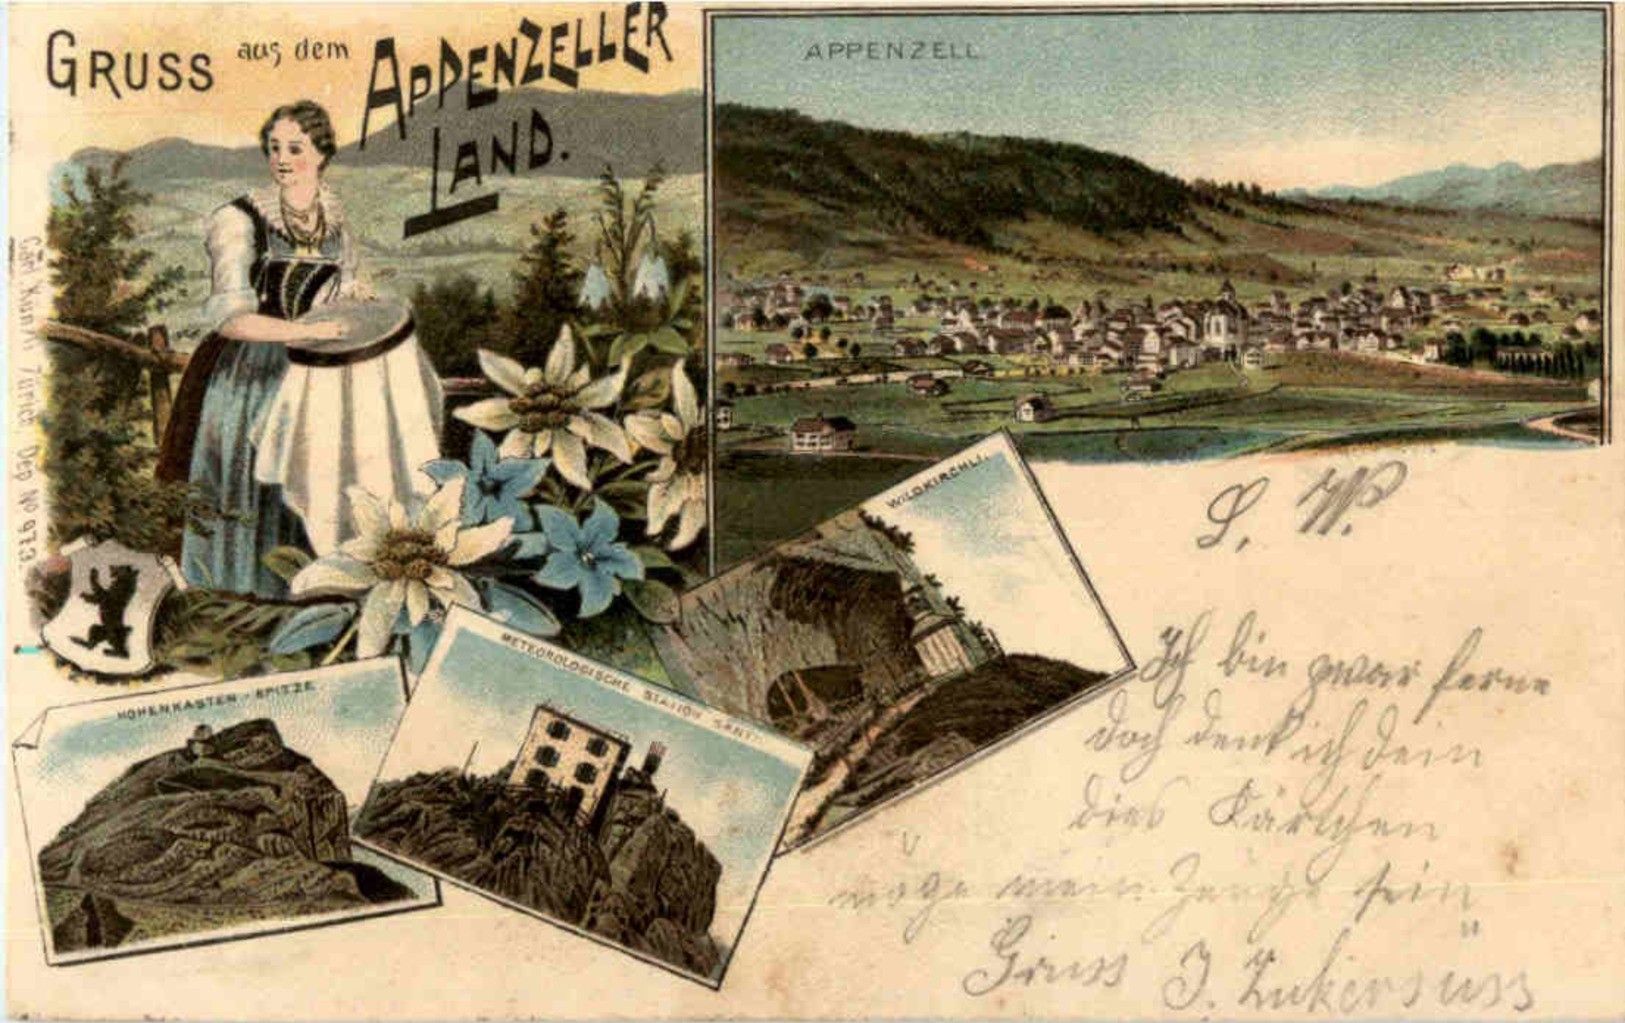 GRUSS aus dem APPENZELLER
LAND.
APPENZELL.
WILDKIRCHLI.
METEOROLOGISCHE STATION SÄNTIS
HOHENKASTEN-SPITZE.
Dep No 973
Ich bin zwar ferne
doch denk ich dein
dies Kärtchen
möge mein Zeuge sein
Gruss J. Zukersüss